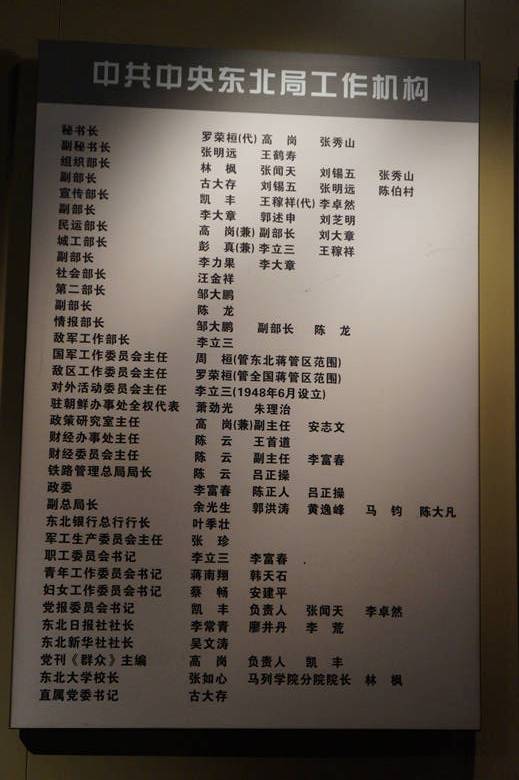 中共中央东北局工作机构
秘书长 罗荣桓(代) 高 岗 张秀山
副秘书长 张明远 王鹤寿
组织部长 林 枫 张闻天 刘锡五 张秀山
副部长 古大存 刘锡五 张明远 陈伯村
宣传部长 凯 丰 王稼祥(代) 李卓然
副部长 李大章 郭述申 刘芝明
民运部长 高 岗(兼) 副部长 刘大章
城工部长 彭 真(兼) 李立三 王稼祥
副部长 李力果 李大章
社会部长 汪金祥
第二部长 邹大鹏
副部长 陈 龙
情报部长 邹大鹏 副部长 陈 龙
敌军工作部长 李立三
国军工作委员会主任 周 桓(管东北蒋管区范围)
敌区工作委员会主任 罗荣桓(管全国蒋管区范围)
对外活动委员会主任 李立三(1948年6月设立)
驻朝鲜办事处全权代表 萧劲光 朱理治
政策研究室主任 高 岗(兼)副主任 安志文
财经办事处主任 陈 云 王首道
财经委员会主任 陈 云 副主任 李富春
铁路管理总局局长 陈 云 吕正操
政委 李富春 陈正人 吕正操
副总局长 余光生 郭洪涛 黄逸峰 马 钧 陈大凡
东北银行总行行长 叶季壮
军工生产委员会主任 张 珍
职工委员会书记 李立三 李富春
青年工作委员会书记 蒋南翔 韩天石
妇女工作委员会书记 蔡 畅 安建平
党报委员会书记 凯 丰 负责人 张闻天 李卓然
东北日报社社长 李常青 廖井丹 李 荒
东北新华社社长 吴文涛
党刊《群众》主编 高 岗 负责人 凯 丰
东北大学校长 张如心 马列学院分院院长 林 枫
直属党委书记 古大存